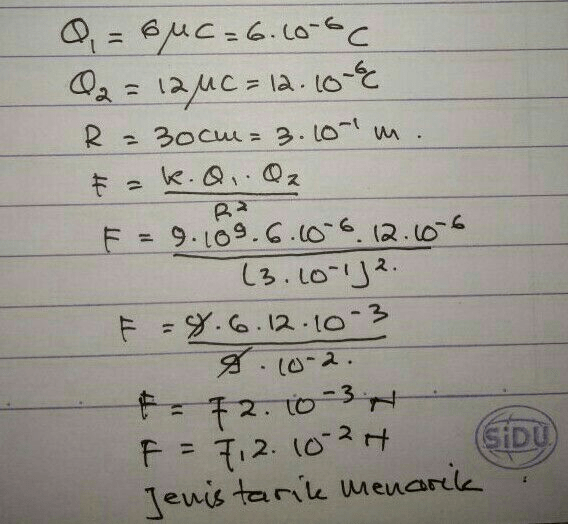 Q₁ = 6 μC = 6.10⁻⁶ C
Q₂ = 12 μC = 12.10⁻⁶C
R = 30cm = 3.10⁻¹ m.
F = k.Q₁.Q₂
R²
F = 9.10⁹.6.10⁻⁶.12.10⁻⁶
(3.10⁻¹)².
F = 9.6.12.10⁻³
9.10⁻².
F = 72.10⁻³ N
F = 7,2.10⁻² N
SiDU
Jenis tarik menarik